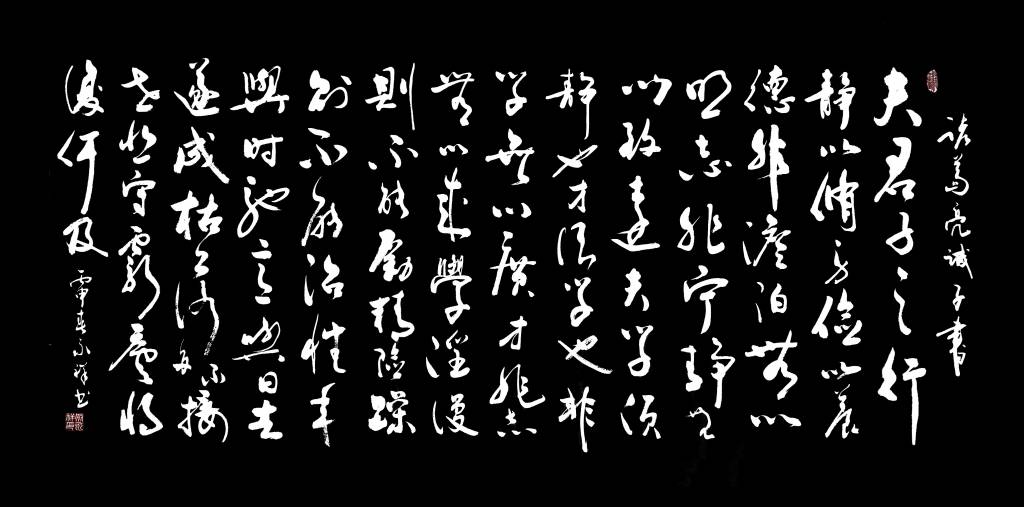 諸葛亮誡子書
夫君子之行
靜以脩身儉以養
德非澹泊無以
明志非宁靜無
以致遠夫学須
靜也才須学也非
学無以廣才非志
無以成學淫漫
則不能勵精險躁
則不能治性年
與時馳意與日去
遂成枯落多不接
世悲守窮廬將
復何及